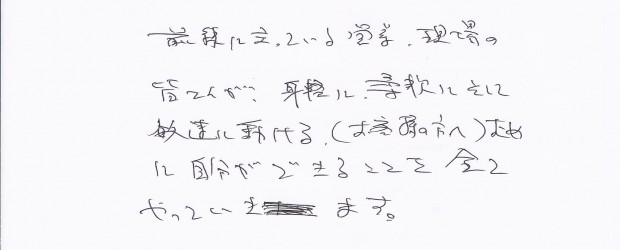 前線に立っている営業、現場の
皆さんが、身軽に、柔軟にそして
敏速に動ける、(お客様の方へ)ため
に自分ができることを全て
やっていきます。